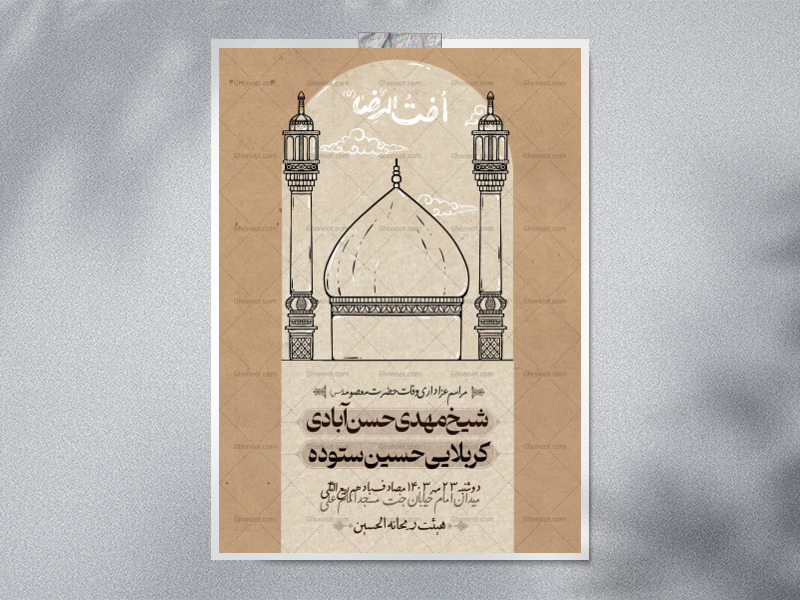 اُخت الرِّضا
مراسم عزاداری وفات حضرت معصومه(س)
شیخ مهدی حسن آبادی
کربلایی حسین ستوده
دوشنبه ۲۳ مهر ۱۴۰۳ مصادف با دهم ربیع الثانی
میدان امام خیابان جنت مسجد امام علی
هیئت ریحانه الحسین
Ghonoot.com